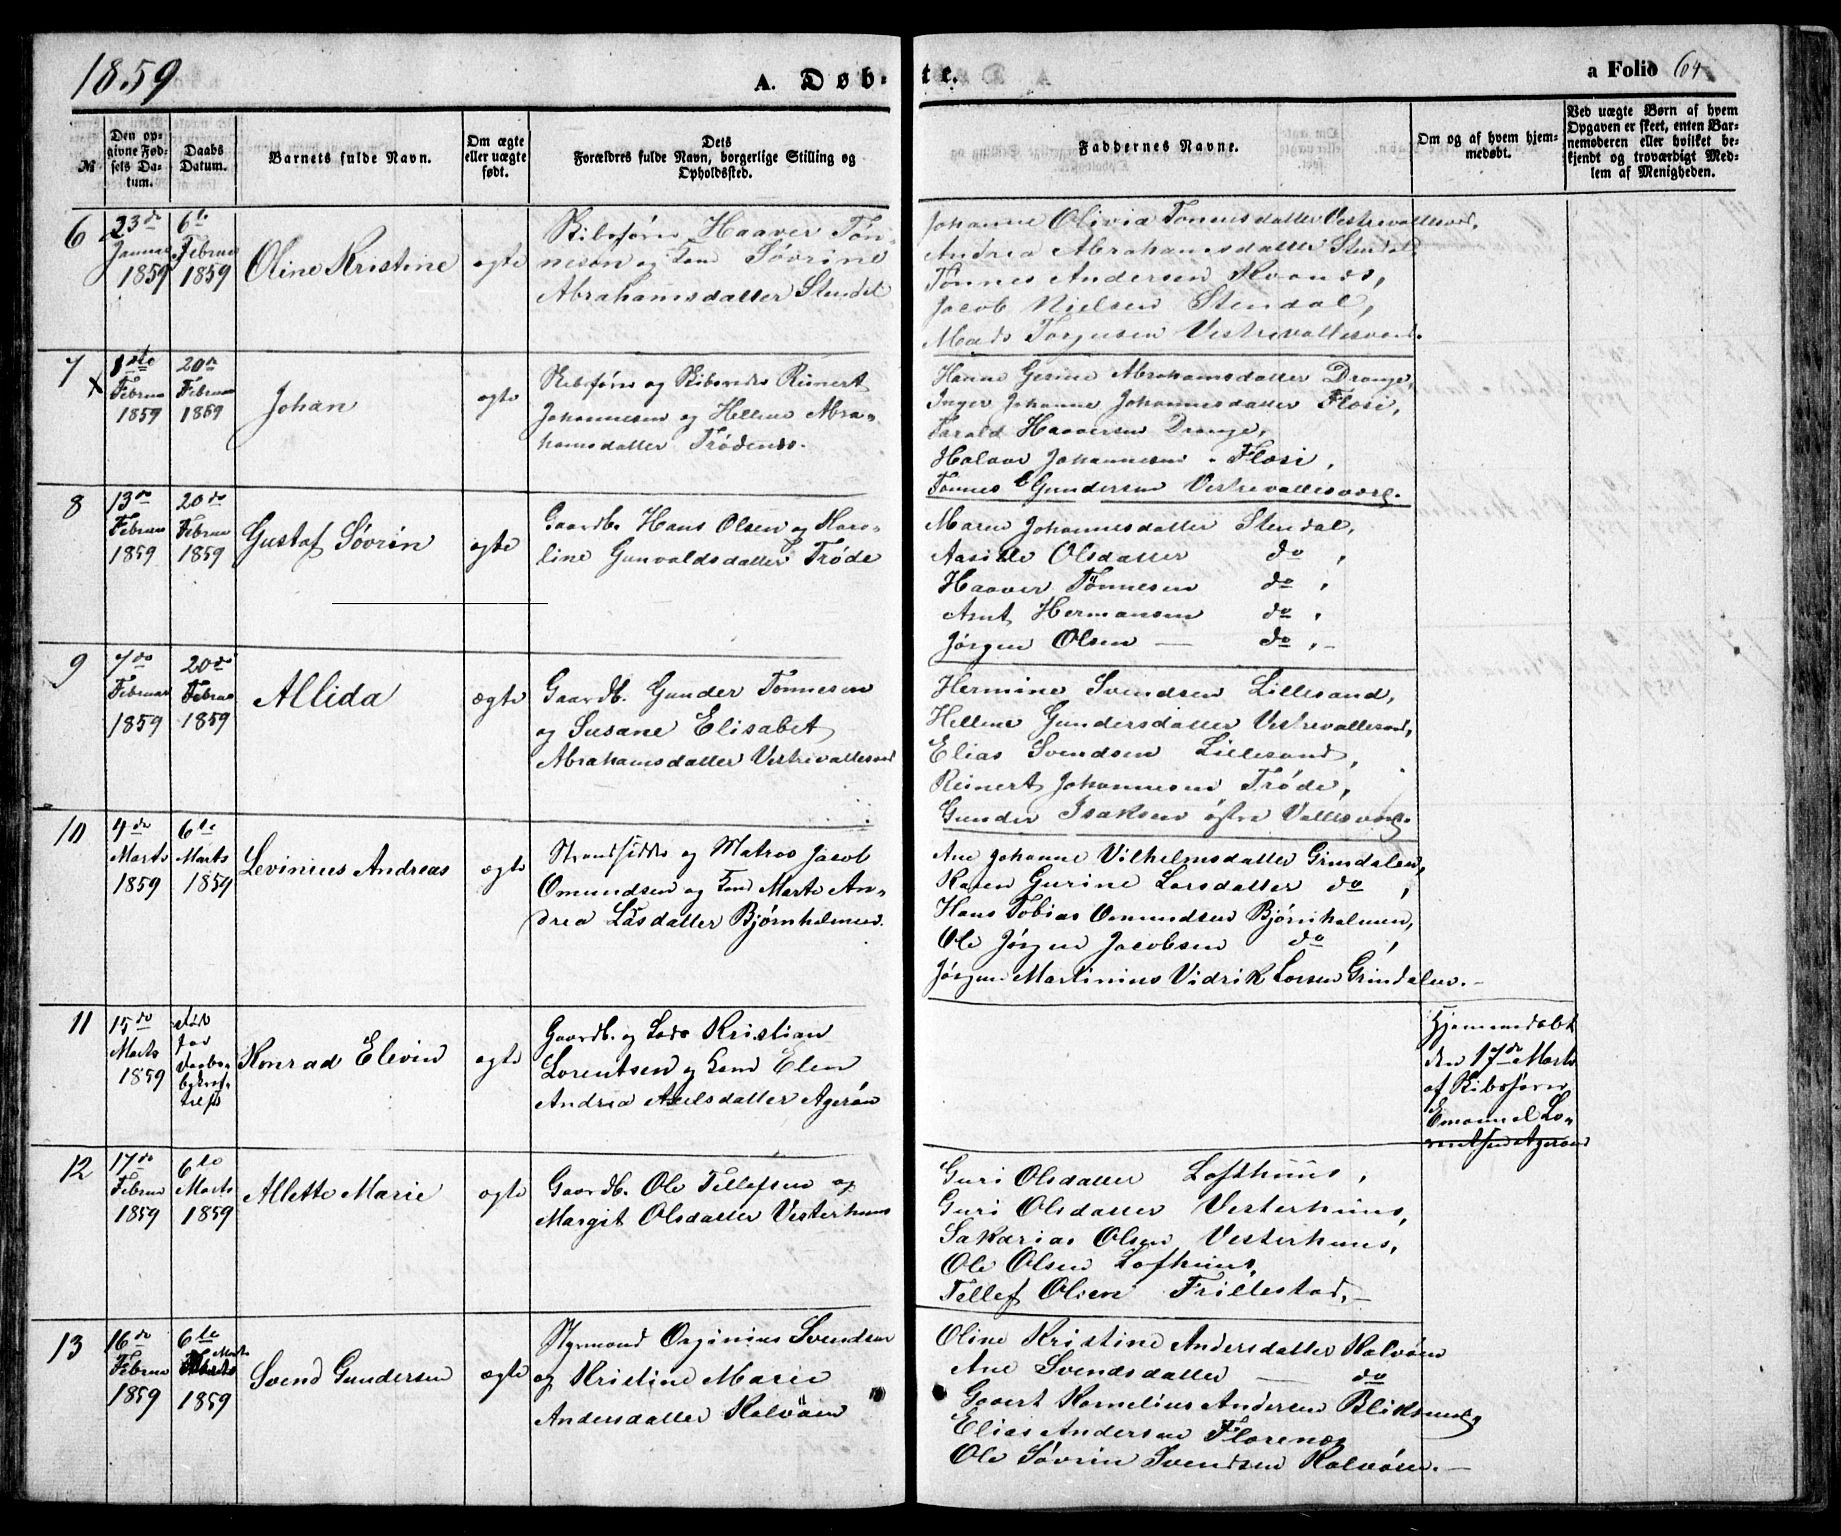 1859
A. Døb-
te.
a Folio 64
№
Den op-
givne Fød-
sels Da-
tum.
Daabs
Datum.
Barnets fulde Navn.
Om ægte
eller uægte
født.
Dets
Forældres fulde Navn, borgerlige Stilling og
Opholdssted.
Faddernes Navne.
Om og af hvem hjem-
medøbt.
Ved uægte Børn af hvem
Opgaven er skeet, enten Bar-
nemoderen eller hvilket be-
kjendt og troværdigt Med-
lem af Menigheden.
6
23de
Januar
1859
6te
Februar
1859
Oline Kristine
ægte
Skibsfører Haaver Tøn-
nesen og Søvrine
Abrahamsdatter Stendal
Johanne Olivia Tønnesdatter Vestrevallesverd,
Andrea Abrahamsdatter Stendal
Tønnes Andersen
Jacob Nielsen Stendal,
Mads Torjusen Vestrevallesverd.
7
x
1ste
Februar
1859
20de
Februar
1859
Johan
ægte
Skibsfører og Reinert
Johannesen og Hellene Abra-
hamsdatter
Hanne Gesine Abrahamsdatter Drange,
Inger Johanne Johannesdatter Flosi,
Tarald Haaversen Drange,
Halvor Johannesen - Flosi,
Tønnes Gundersen Vestrevallesverd.
8
13de
Februar
1859
20de
Februar
1859
Gustaf Søvrin
ægte
Gaardb. Hans Olsen og Karo-
line Gunvaldsdatter Trøde
Maren Johannesdatter Stendal,
Aasille Olsdatter do,
Haaver Tønnesen do,
Arnt Hermansen do,
Jørgen Olsen — do,-
9
7de
Februar
1859
20de
Februar
1859
Allida
ægte
Gaardb. Gunder Tønnesen
og Susane Elisabet
Abrahamsdatter Vestrevallesverd
Hermine Svendsen Lillesand,
Hellene Gundersdatter Vestrevallesverd,
Elias Svendsen Lillesand,
Reinert Johannesen Trøde,
Gunder Isaksen østre Vallesverd.
10
4de
Marts
1859
6te
Marts
1859
Levinius Andreas
ægte
Strandsidder og Matros Jacob
Omundsen og Marte An-
drea Lasdatter Bjørnholmen.
Ane Johanne Vilhelmsdatter Grimdalen,
Karen Gurine Larsdatter do,
Hans Tobias Omundsen Bjørnholmen,
Ole Jørgen Jacobsen do,
Jørgen Martinius Vidrik Larsen Grimdalen.-
11
15de
Marts
1859
død
før
Daabs-
bekræf-
telse
Konrad Elevin
ægte
Gaardb. og Lods Kristian
Lorentsen og Elen
Andrea Axelsdatter Agerøen
Hjemmedøbt
den 17de Marts
af Skibsfører
Emanuel Lo-
rentsen Agerøen
12
17de
Februar
1859
6te
Marts
1859
Allette Marie
ægte
Gaardb. Ole Tellefsen og
Margit Olsdatter Vesterhuus
Guri Olsdatter Lofthuus,
Guri Olsdatter Vesterhuus,
Sakarias Olsen Vesterhuus,
Ole Olsen Lofthuus,
Tellef Olsen Frillestad,-
13
16de
Februar
1859
6te
Marts
1859
Svend Gundersen
ægte
Styrmand Orginius Svendsen
og Kristine Marie
Andersdatter Kalvøen
Oline Kristine Andersdatter Kalvøen
Ane Svendsdatter — do
Govert Kornelius Andersen
Elias Andersen Florenæs
Ole Søvrin Svendsen Kalvøen.-